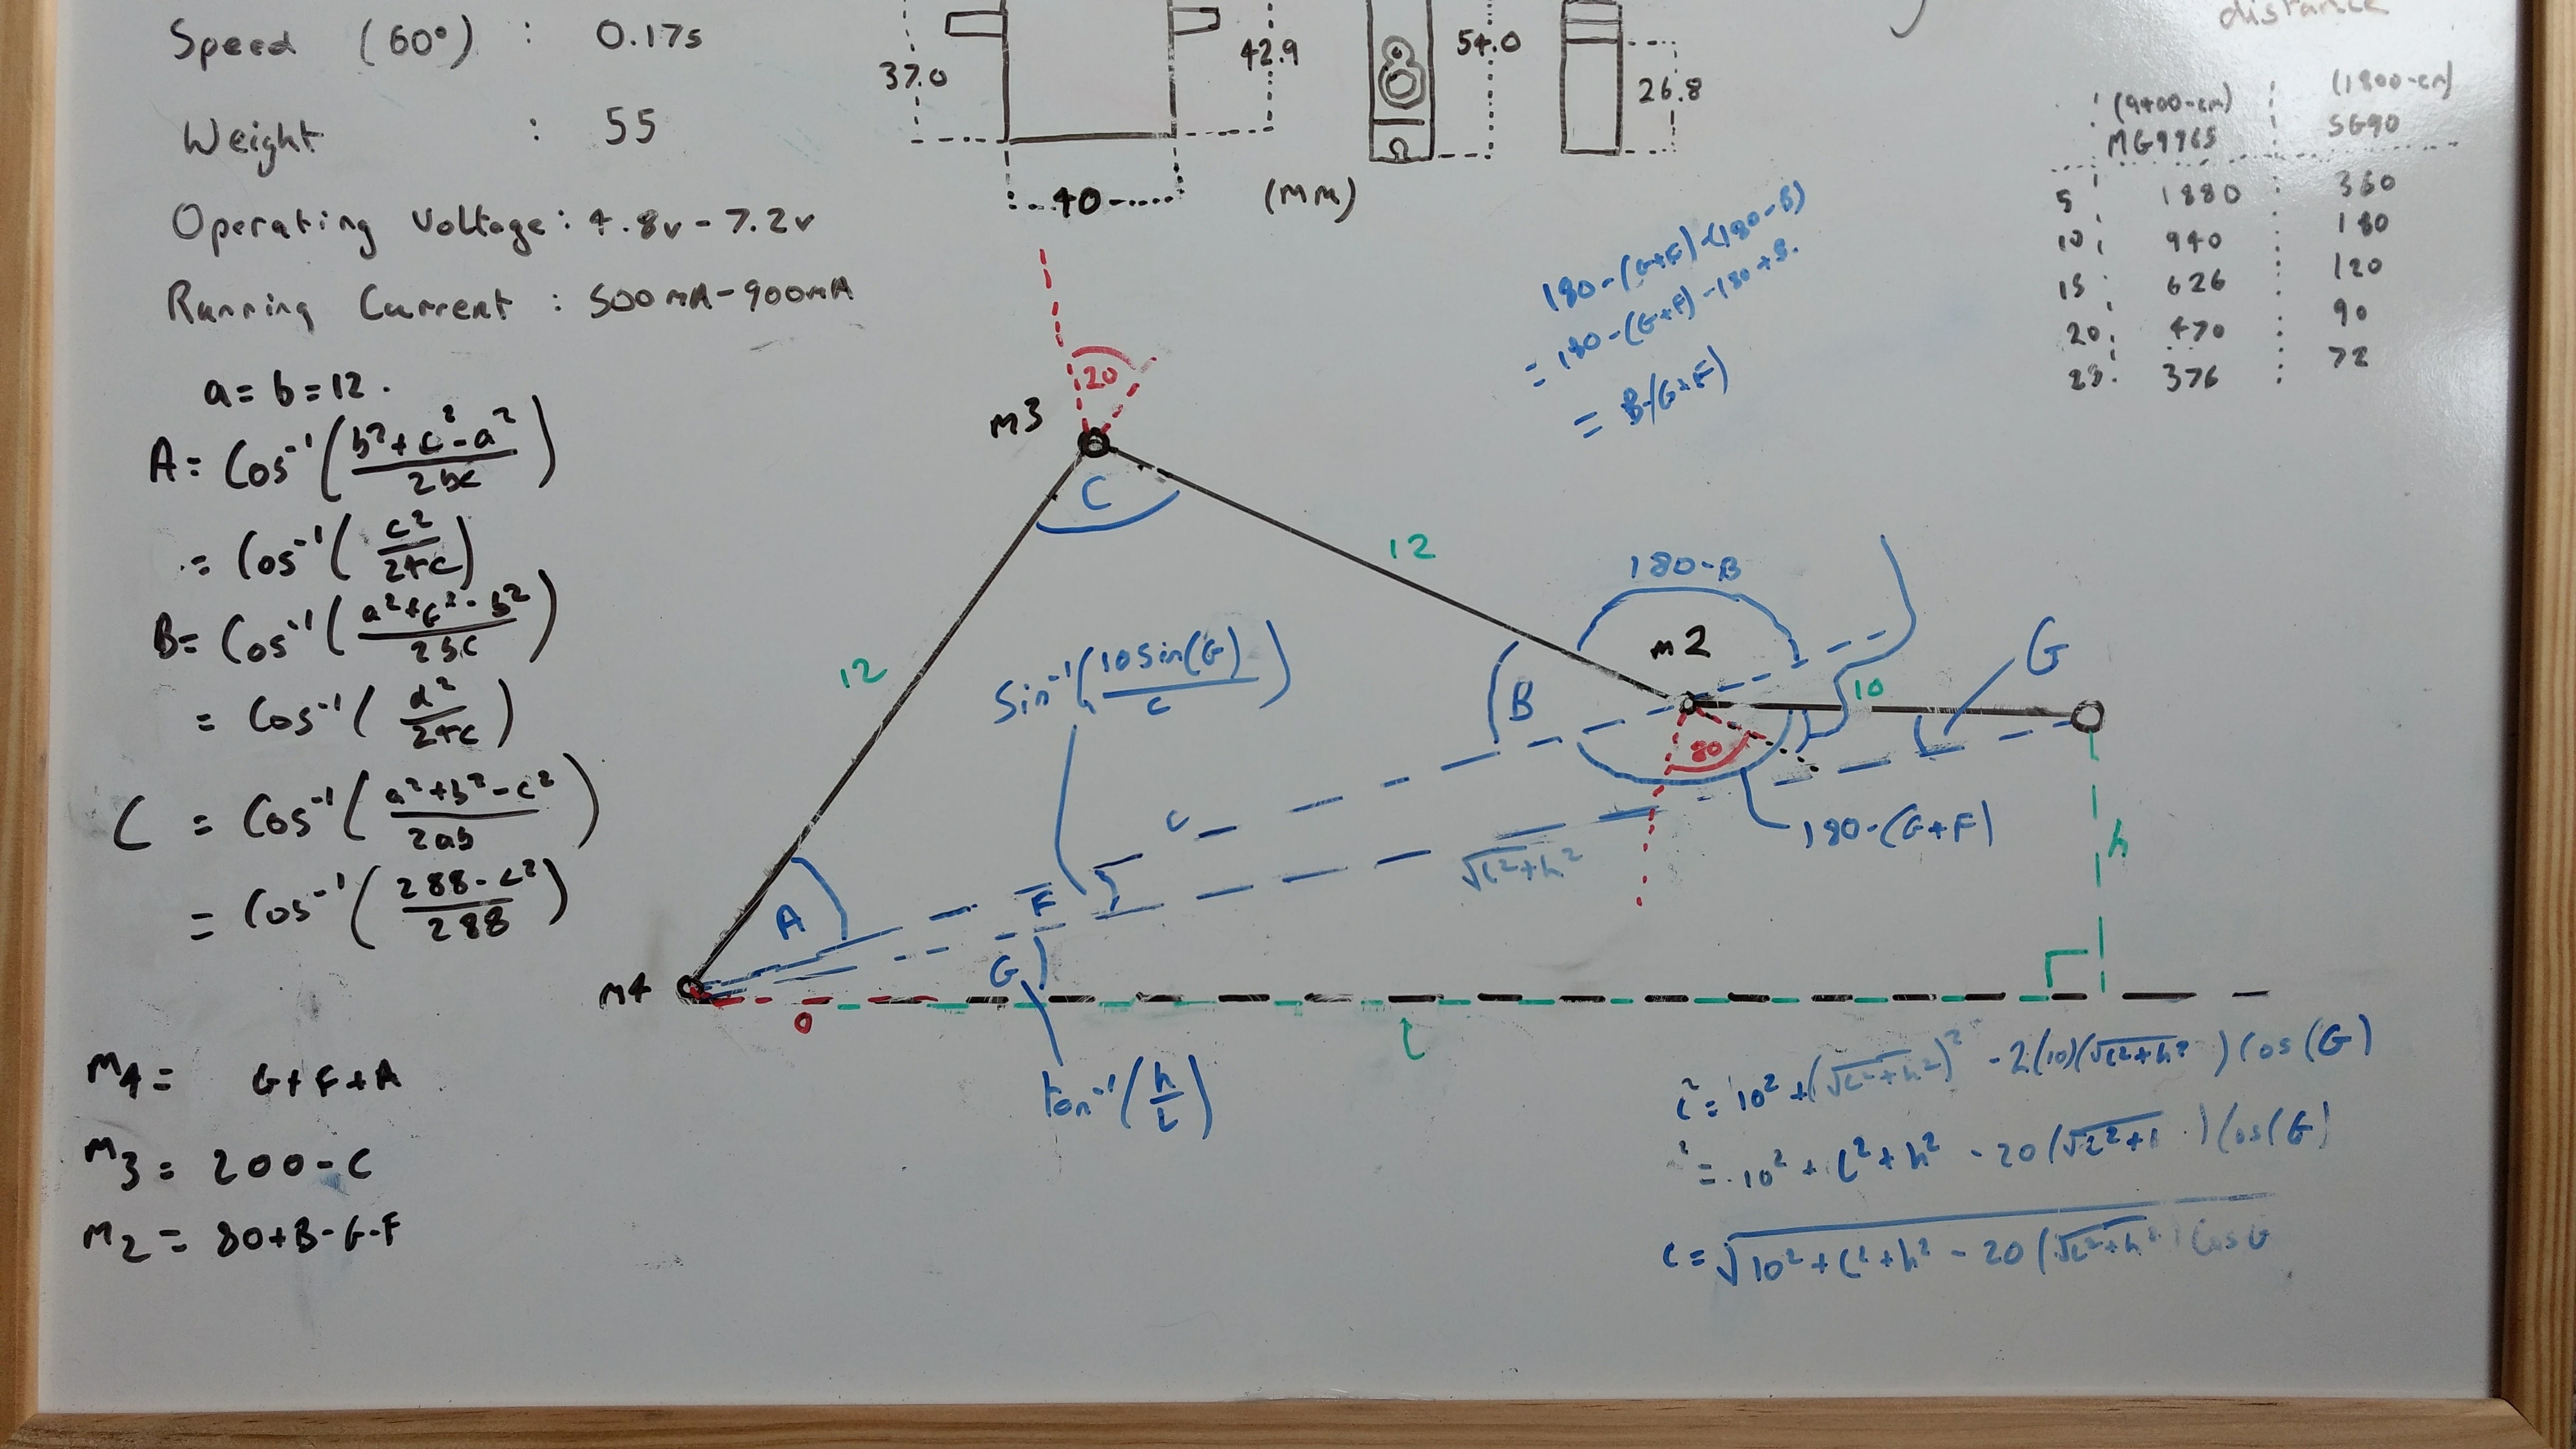 Speed (60°) : 0.17s
Weight : 55
Operating Voltage : 4.8v - 7.2v
Running Current : 500mA-900mA
37.0
42.9
40
54.0
26.8
(MM)
distance
(9400-cm) (1800-cm)
MG996S SG90
5 1880 360
10 940 180
15 626 120
20 470 90
25 376 72
180-(G+F)-(180-B)
= 180-(G+F)-180+B
= B-(G+F)
a = b = 12.
A = Cos⁻¹((b²+c²-a²)/2bc)
= Cos⁻¹(c²/24c)
B = Cos⁻¹((a²+c²-b²)/2bc)
= Cos⁻¹(a²/24c)
C = Cos⁻¹((a²+b²-c²)/2ab)
= Cos⁻¹((288-c²)/288)
m4 = G+F+A
m3 = 200-C
m2 = 80+B-G-F
20
m3
C
12
12
180-B
m2
Sin⁻¹(10Sin(G)/c)
B
10
G
80
180-(G+F)
c
√(L²+h²)
h
A
F
G
m4
0
L
tan⁻¹(h/L)
c² = 10² + (√(L²+h²))² - 2(10)(√(L²+h²)) Cos(G)
² = 10² + L² + h² - 20(√(L²+ ) Cos(G)
c = √(10² + L² + h² - 20(√(L²+h²)) Cos G